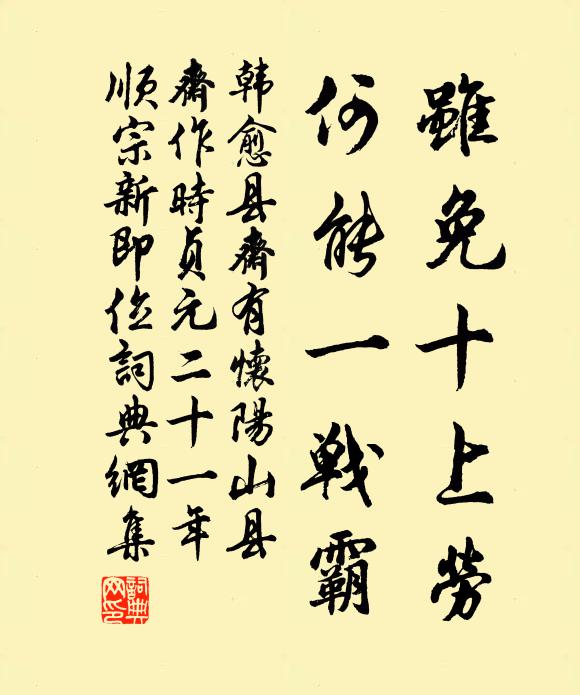 雖免十上勞
何能一戦霸
韩愈县齋有懷陽山县
齋作時貞元二十一年
順宗新即位詞典網集
詞典
网印